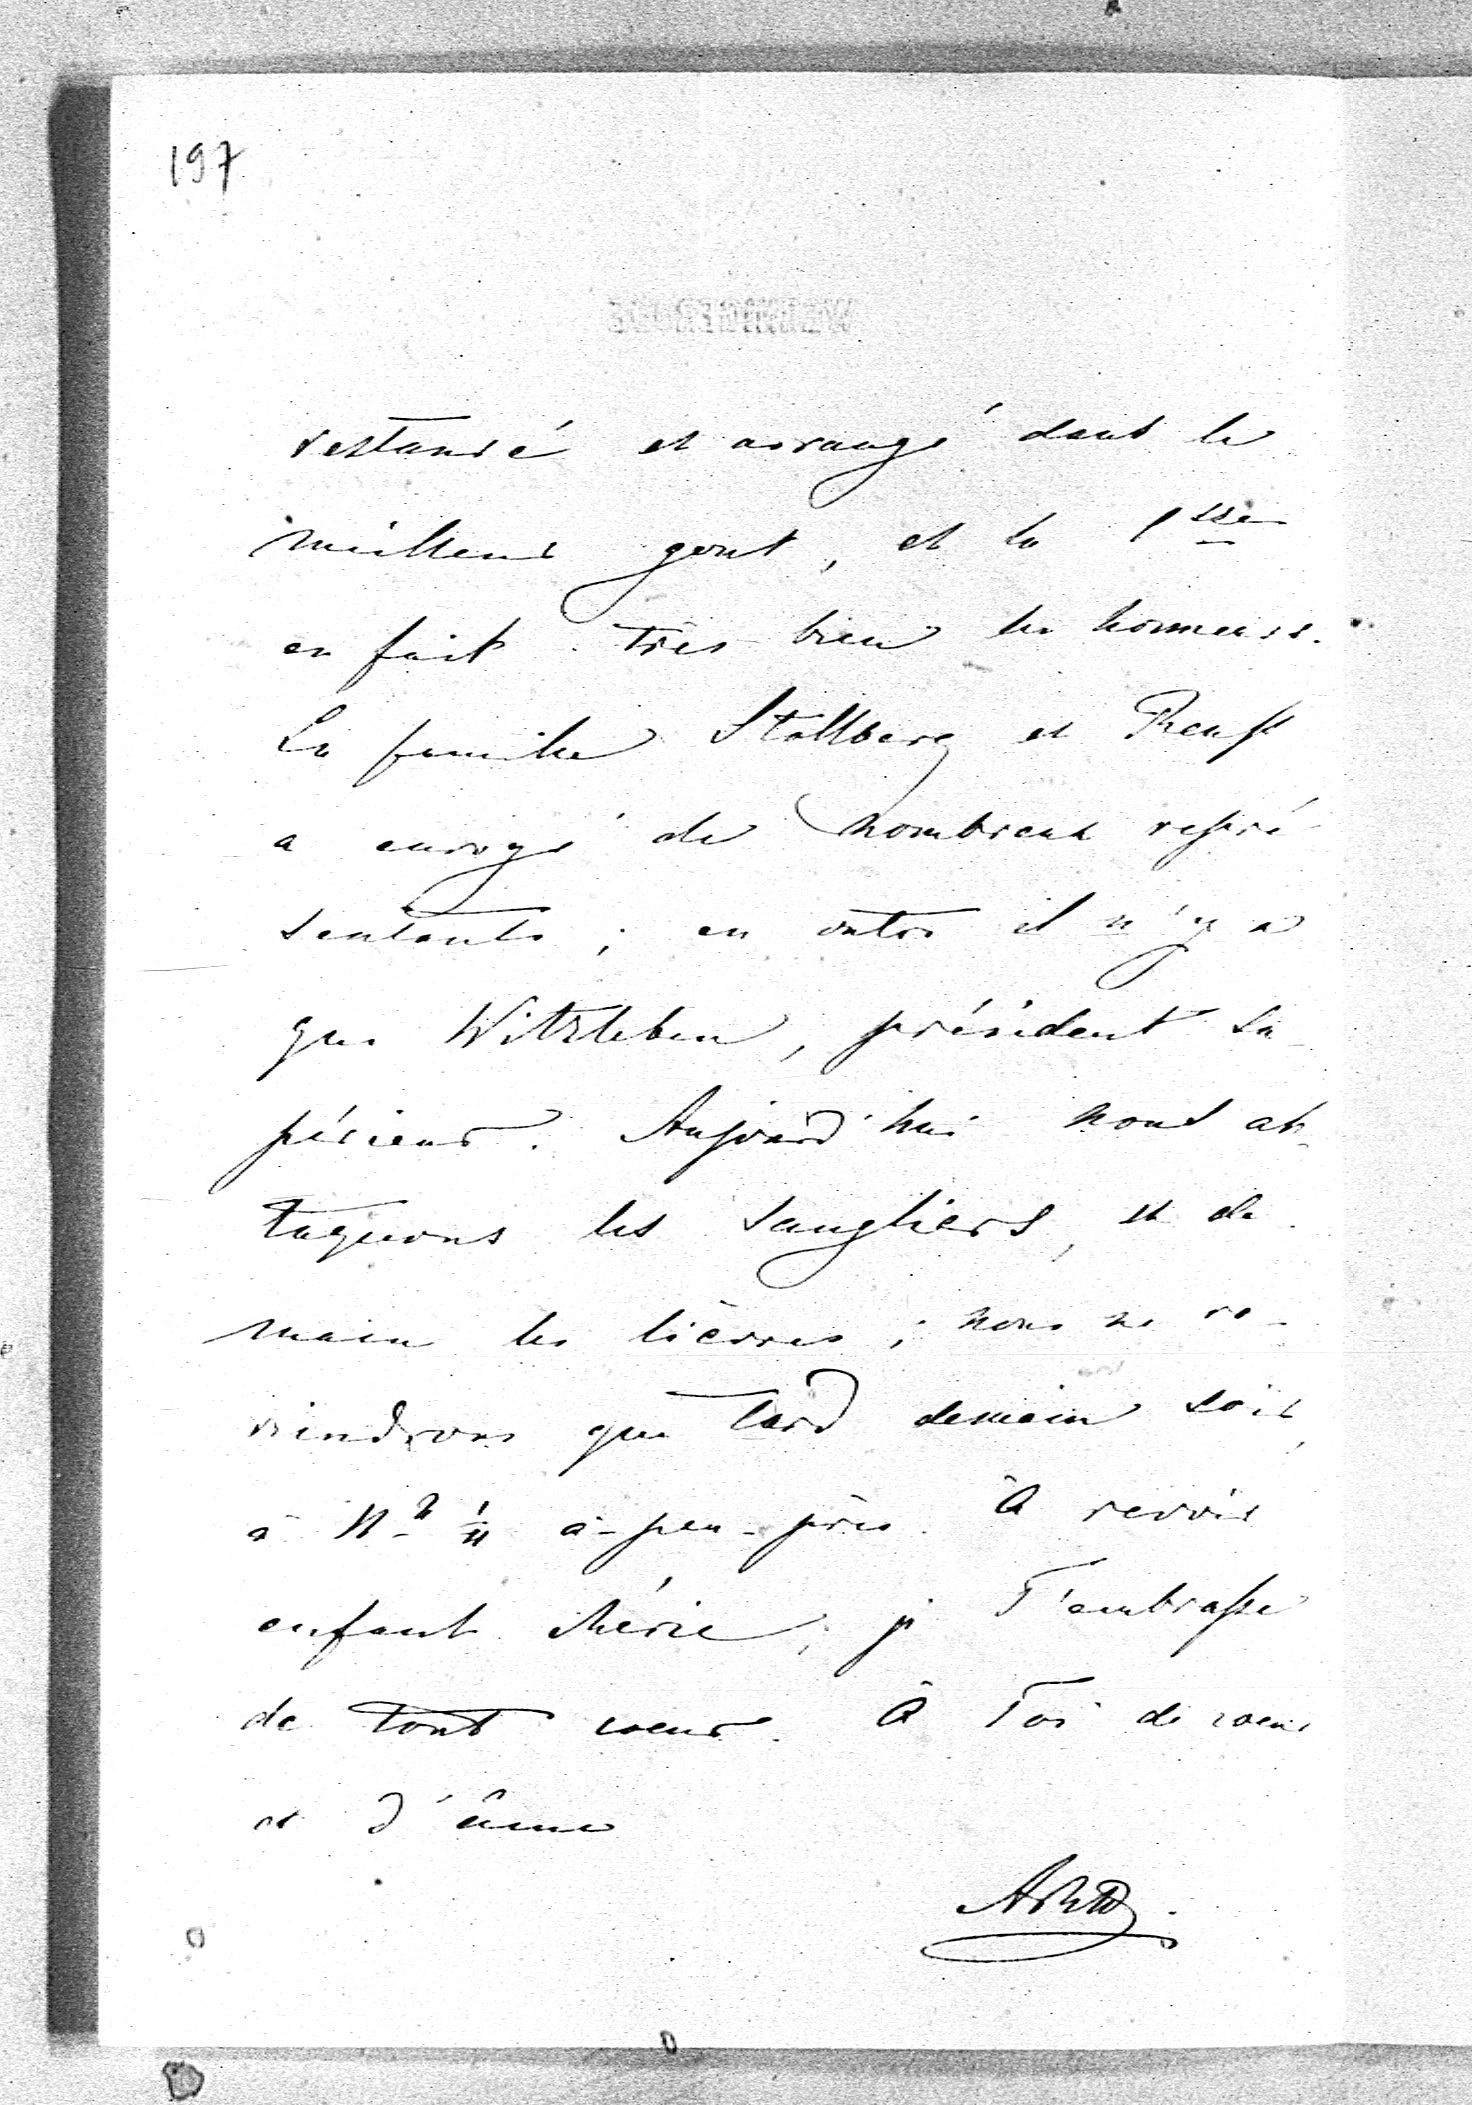 197
restauré et arrangé dans le
meilleur gout, et la Psse
en fait très bien les honneurs.
La famille Stollberg et Reuß
a envoyé de nombreux repré
sentants ; en outre il n'y a
que Witzleben, président su-
périeur. Aujourd'hui nous at-
taquons les sangliers, et de
main les lièvres ; nous ne re-
viendrons que tard demain soir,
à à-peu-près. À revoir
enfant chérie, je T'embraße
de tout coeur. À Toi de coeur
et d'âme